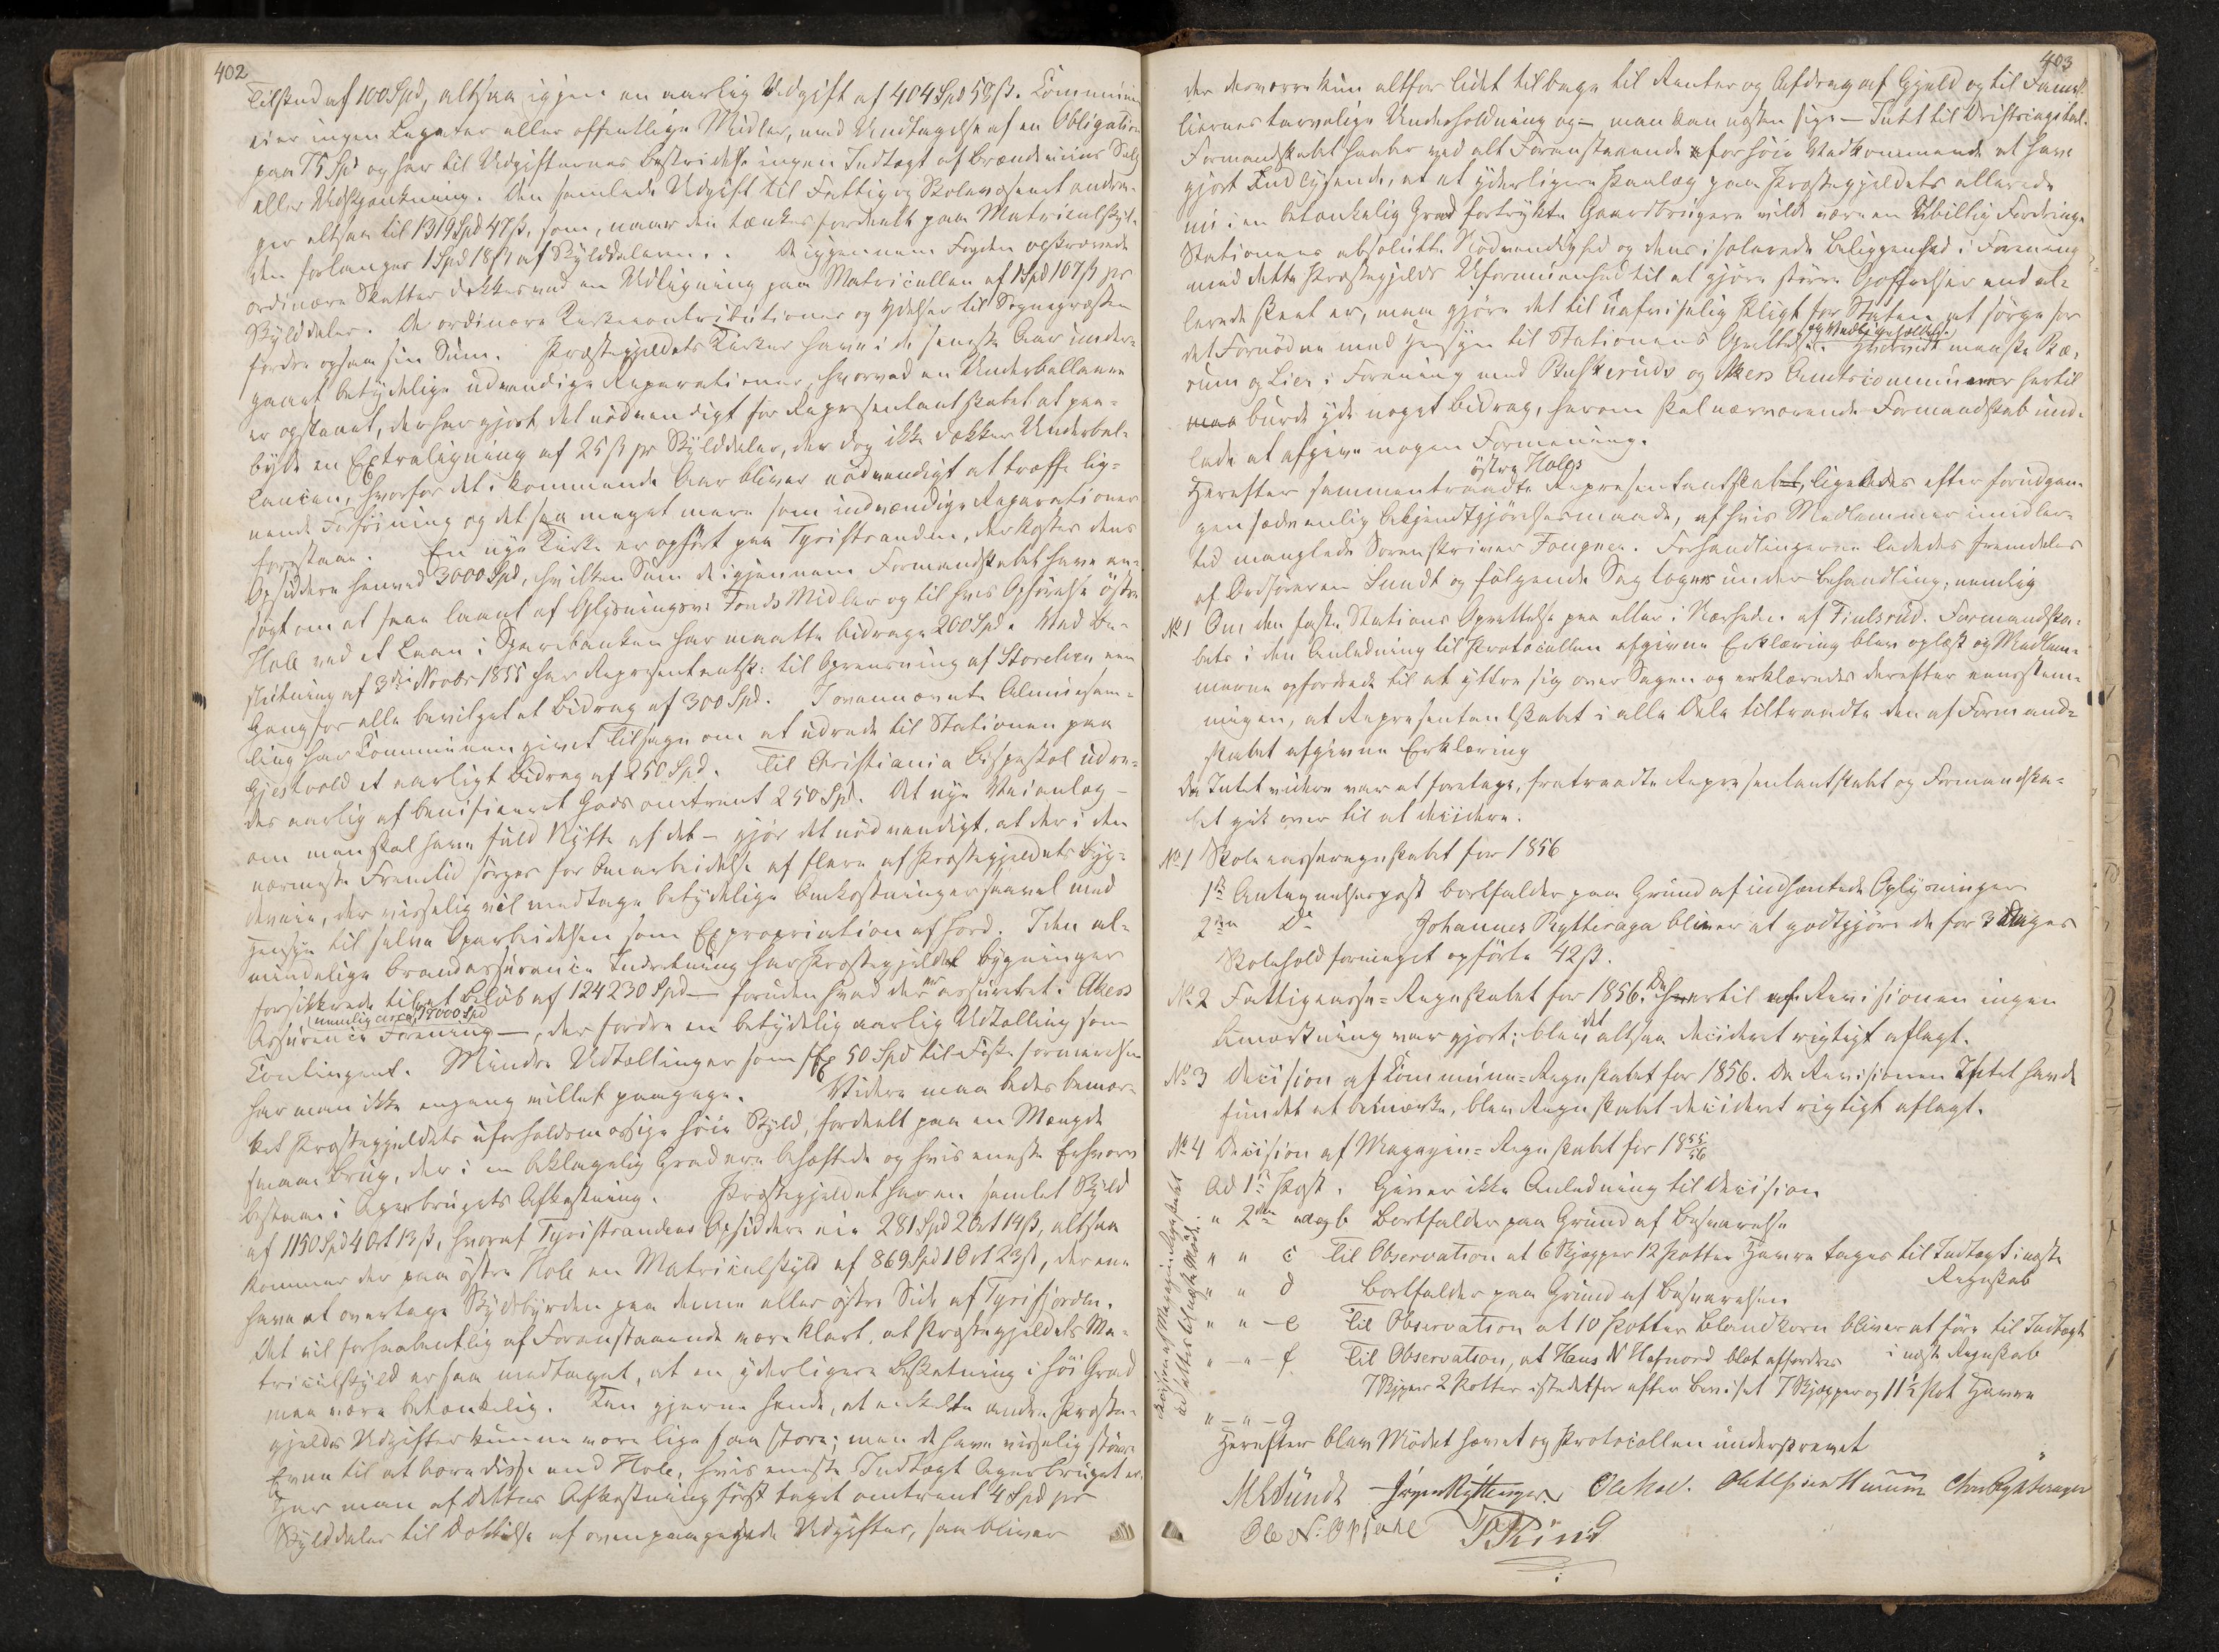 402
Tilskud af 100 Spd, altsaa igjen en aarlig Udgift af 404 Spd 58 ß. Communen
eier ingen Legater eller offentlige Midler, med Undtagelse af en Obligation
paa 75 Spd og har til Udgifternes Bestridelse ingen Indtægt af Brændeviins Salg
eller Udskjænkning. Den samlede Udgift til Fattig og Skolevæsenet andra-
ger altsaa til 1319 Spd 47 ß, som, naar den tænkes fordeelt paa Matriculskyl-
den forlanger 1 Spd 18 ß af Skylddaleren. De igjennem Fogden opkrævede
ordinære Skatter dækkes ved en Udligning paa Matriculen af 1 Spd 107 ß pr
Skylddaler. De ordinære Kirkecontributioner og Ydelser til Sognepræsten
fordre ogsaa sin Sum. Præstegjeldets Kirker have i de seneste Aar under-
gaaet betydelige udvendige Reparationer, hvorved en Underballance
er opstaaet, der har gjort det nödvendigt for Repræsentantskabet at paa-
byde en Extraligning af 25 ß pr Skylddaler, der dog ikke dækker Underbal-
lancen, hvorfor det i kommende Aar bliver nödvendigt at træffe lig-
nende Forföining og det saa meget mere som indvendige Reparationer
forestaae. En nye Kirke er opfört paa Tyristranden, der koster dens
Opsiddere henved 3000 Spd, hvilken Sum de igjennem Formandskabet have an-
sögt om at faae laant af Oplysningsv: Fonds Midler og til hvis Opförelse östre
Hole ved et Laan i Sparebanken har maatte bidrage 200 Spd. Ved Be-
slutning af 3die Novbr 1855 har Repræsentantsk: til Oprensning af Storelven een
Gang for alle bevilget et Bidrag af 300 Spd. I ovennævnte Almuesam-
ling har Communen givet Tilsagn om at udrede til Stationen paa
Gjestvold et aarligt Bidrag af 250 Spd. Til Christiania Bispestol udre-
des aarlig af beneficeret Gods omtrent 250 Spd. Det nye Veianlæg -
om man skal have fuld Nytte af det - gjör det nödvendigt, at der i den
nærmeste Fremtid sörges for Omarbeidelse af flere af Præstegjeldets Byg-
deveie, der visselig vil medtage betydelige Omkostninger saavel med
Hensyn til selve Oparbeidelsen som Expropriation af Jord. I den al-
mindelige Brandassurance Indretning har Præstegjeldet Bygninger
forsikkrede til et Belöb af 124230 Spd - foruden hvad der er assureret i Akers
Assurance Forening (nemlig circa 17000 Spd -, der fordre en betydelig aarlig Udtælling som
Contingent. Mindre Udtællinger som f Ex 50 Spd til
har man ikke engang villet paagage. Videre maa bedes bemær-
ket Præstegjeldets uforholdsmæssige höie Skyld, fordeelt paa en Mængde
smaae Brug, der i en beklagelig Grad ere behæftede og hvis eneste Erhverv
bestaaer i Agerbrugets Afkastning. Præstegjeldet har en samlet Skyld
af 1150 Spd 4 Ort 13 ß, hvoraf Tyristrandens Opsiddere eie 281 Spd 2 Ort 14 ß, altsaa
kommer der paa östre Hole en Matriculskyld af 869 Spd 1 Ort 23 ß, der ene
have at overtage Skydsbyrden paa denne eller östre Side af Tyrifjorden.
Det vil forhaabentlig af Foranstaaende være klart, at Præstegjeldets Ma-
triculskyld er saa medtaget, at en yderligere Beskatning i höi Grad
maa være betænkelig. Kan gjerne hende, at enkelte andre Præste-
gjelds Udgifter kunne være lige saa store; men de have visselig större
Evne til at bære disse end Hole, hvis eneste Indtægt Agerbruget er.
Har man af dettes Afkastning först taget omtrent 4 Spd pr
Skylddaler til Dækkelse af ovenpaapegede Udgifter, saa bliver
403
der desværre kun altfor lidet tilbage til Renter og Afdrag af Gjeld og til Fami-
liernes tarvelige Underholdning og - man kan næsten sige - Intet til Driftscapital.
Formandskabet haaber ved alt Foranstaaende for höie Vedkommende at have
gjort Indlysende, at et yderligere Paalæg paa Præstegjeldets allerede
nu i en betænkelig Grad fortrykte Gaardbrugere vilde være en Ubillig Fordring.
Stationens absolutte Nödvendighed og dens isolerede Beliggenhed i Forening
med dette Præstegjelds Uformuenhed til at gjöre större Opoffrelser end al-
lerede skeet er, maa gjöre det til uafviselig Pligt for Staten at sörge for
det Fornödne med Hensyn til Stationens Oprettelse og Vedligeholdelse. Hvorvidt maaske Bæ-
rum og Lier i Forening med Buskeruds og Akers Amtscommuner hertil
maa burde yde noget Bidrag, herom skal nærværende Formandskab und-
lade at afgive nogen Formening.
Herefter sammentraadte östre Holes Repræsentantskab, ligeledes efter forudgan-
gen sædvanlig Bekjendtgjörelsesmaade, af hvis Medlemmer imidler-
tid manglede Sorenskriver Fougner. Forhandlingerne lededes fremdeles
af Ordföreren Sundt og fölgende Sag toges under Behandling, nemlig
No 1 Om den faste Stations Oprettelse paa eller i Nærheden af Fiulsrud. Formandska-
bets i den Anledning til Protocollen afgivne Erklæring blev oplæst og Medlem-
merne opfordrede til at yttre sig over Sagen og erklæredes derefter eensstem-
migen, at Repræsentantskabet i alle Dele tiltraadte den af Formand-
skabet afgivne Erklæring
Da Intet videre var at foretage, fratraadte Repræsentantskabet og Formandska-
bet gik over til at decidere:
No 1 Skolecasseregnskabet for 1856
1ste Antegnelsespost bortfalder paa Grund af indhentede Oplysninger
2den Do Johannes Rytteraga bliver at godtgjöre de for 3 Dages
Skolehold formeget opförte 42 ß.
No 2 Fattigcasse-Regnskabet for 1856. Da hertil af Revisionen ingen
Bemærkning var gjort, blev det altsaa decideret rigtigt aflagt.
No 3 Decision af Commune-Regnskabet for 1856. Da Revisionen Intet havde
fundet at bemærke, blev Regnskabet decideret rigtigt aflagt.
No 4 Decision af Magazin-Regnskabet for 1855/56
Ad 1ste Post. Giver ikke Anledning til Decision
" 2den a og b Bortfalder paa Grund af Besvarelse
" " c Til Observation at 6 Skjepper 12 Potter Havre tages til Indtægt i næste
Regnskab
" " d Bortfalder paa Grund af Besvarelsen
" " - e Til Observation at 10 Potter Blandkorn bliver at före til Indtægt
i næste Regnskab
" - " - f Til Observation, at Hans N Hafnord blot affordres
7 Skjpper 2 Potter istedetfor efter Beviset 7 Skjepper og 11 ½ Pot Havre
" - " - g
Decision af Magazin Regnskabet
udsættes til næste Möde.
Herefter blev Mödet hævet og Protocollen underskrevet
Sundt Jörgen Rytterager Ole Chr Rytterager
Ole N: Opsahl